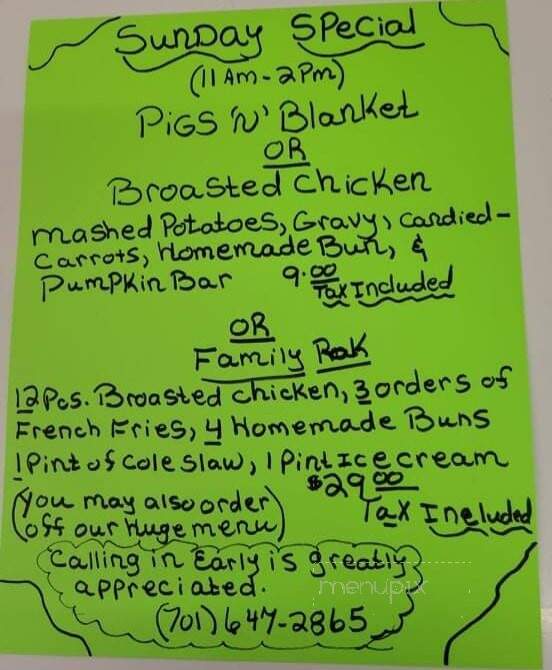 Sunday Special
(11 Am - 2 Pm)
Pigs 'N' Blanket
OR
Broasted Chicken
mashed Potatoes, Gravy, candied-
Carrots, Homemade Bun, &
Pumpkin Bar 9.00
Tax Included
OR
Family Pak
12 Pcs. Broasted chicken, 3 orders of
French Fries, 4 Homemade Buns
1 Pint of Cole Slaw, 1 Pint Ice cream
$29.00
(You may also order
off our Huge menu)
Tax Included
Calling in Early is greatly
appreciated.
menupix
(701) 647-2865